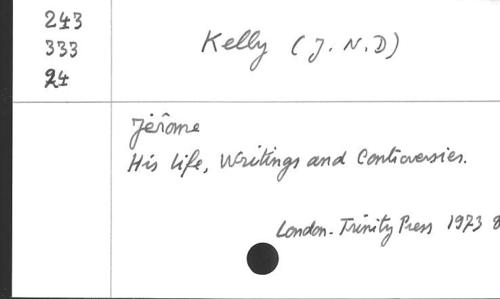 243
333
24
Kelly (J. N. D)
Jérôme
His life, Writings and Controversies.
London. Trinity Press 1973 8